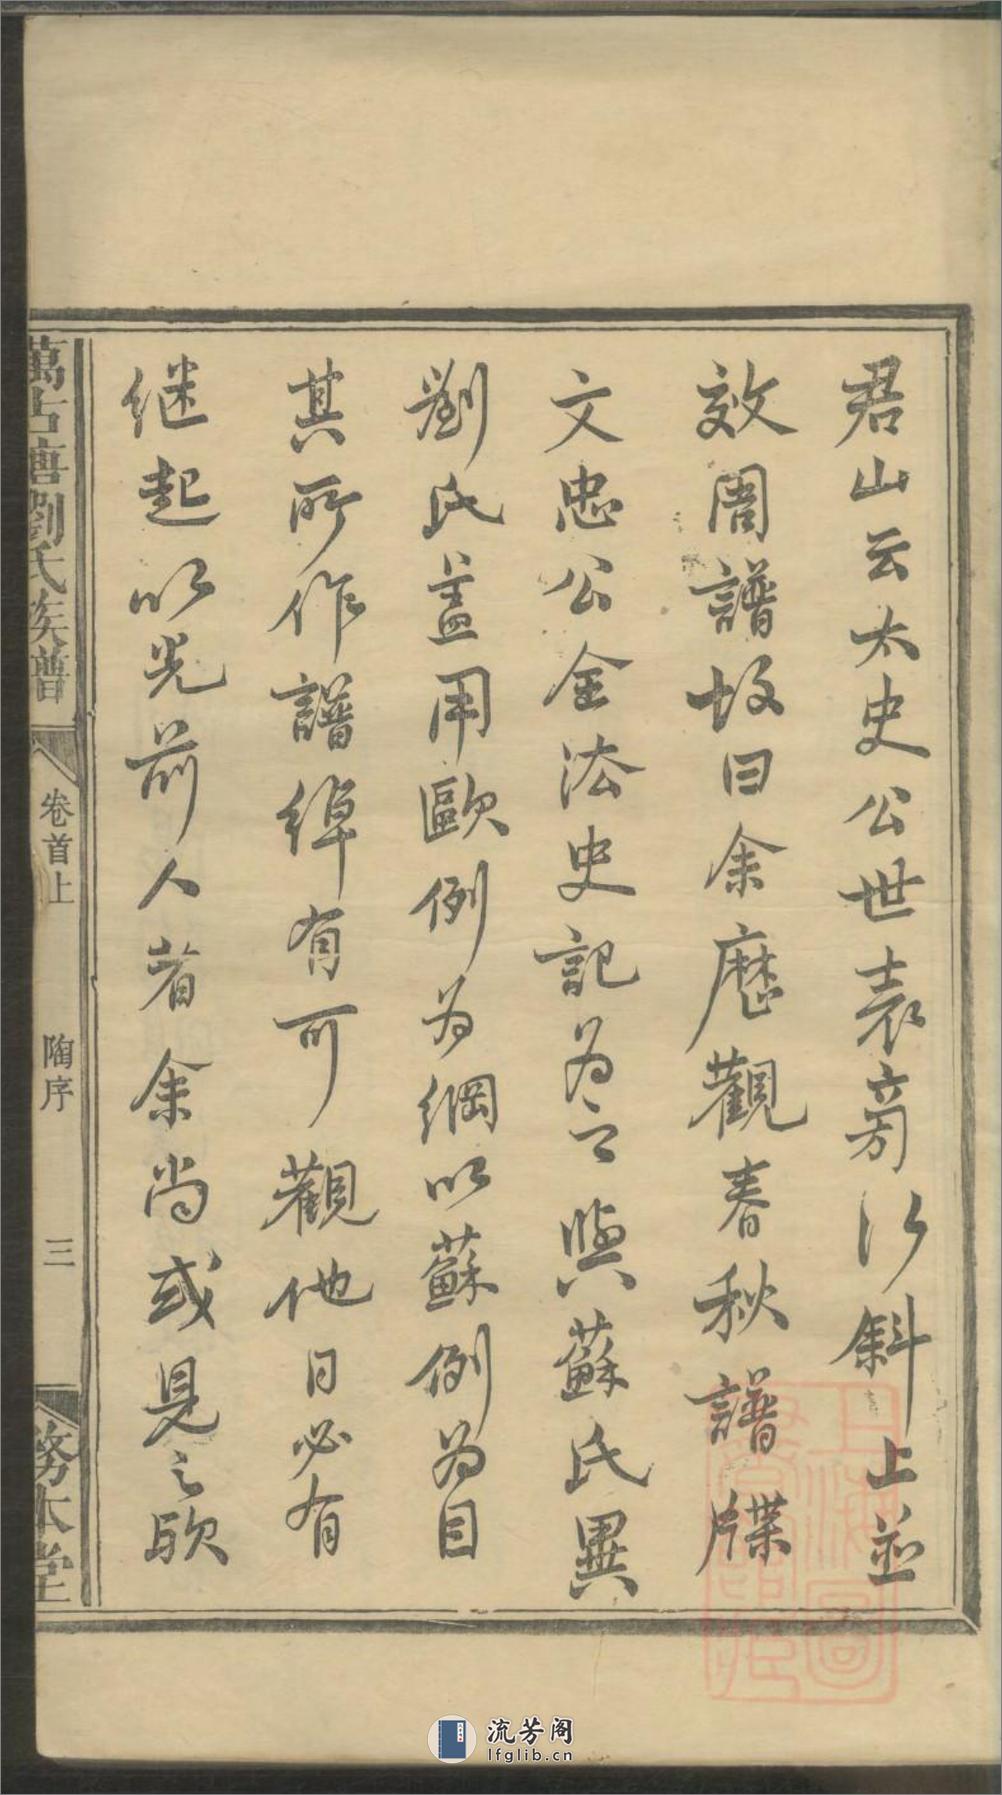 君山云太史公世表旁行斜上並
效周譜故曰余歷觀春秋譜牒
文忠公全法史記爲之與蘇氏異
劉氏蓋用歐例为綱以蘇例为目
其所作譜綽有可觀他日必有
继起以光前人者余尚或見之欤
萬古塘劉氏族譜
卷首上
陶序
三
務本堂
流芳阁
lfglib.cn